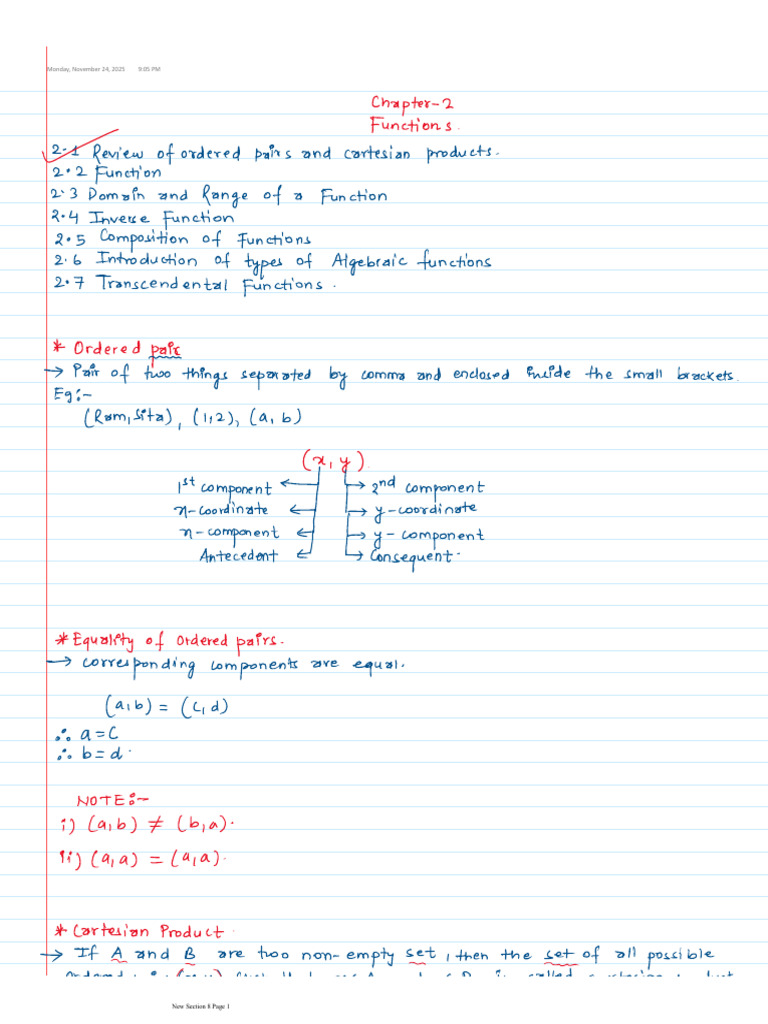 Monday, November 24, 2025 9:05 PM
Chapter-2
Functions.
2.1 Review of ordered pairs and cartesian products.
2.2 Function
2.3 Domain and Range of a Function
2.4 Inverse Function
2.5 Composition of Functions
2.6 Introduction of types of Algebraic functions
2.7 Transcendental Functions.
* Ordered pair
→ Pair of two things separated by comma and enclosed inside the small brackets.
Eg:-
(Ram, Sita), (1,2), (a, b)
(x, y)
1st component 2nd component
x-coordinate y-coordinate
x-component y-component
Antecedent Consequent.
* Equality of Ordered pairs.
→ corresponding components are equal.
(a,b) = (c,d)
∴ a = c
∴ b = d.
NOTE:-
i) (a,b) ≠ (b,a).
ii) (a,a) = (a,a).
* Cartesian Product.
→ If A and B are two non-empty set, then the set of all possible
New Section 8 Page 1